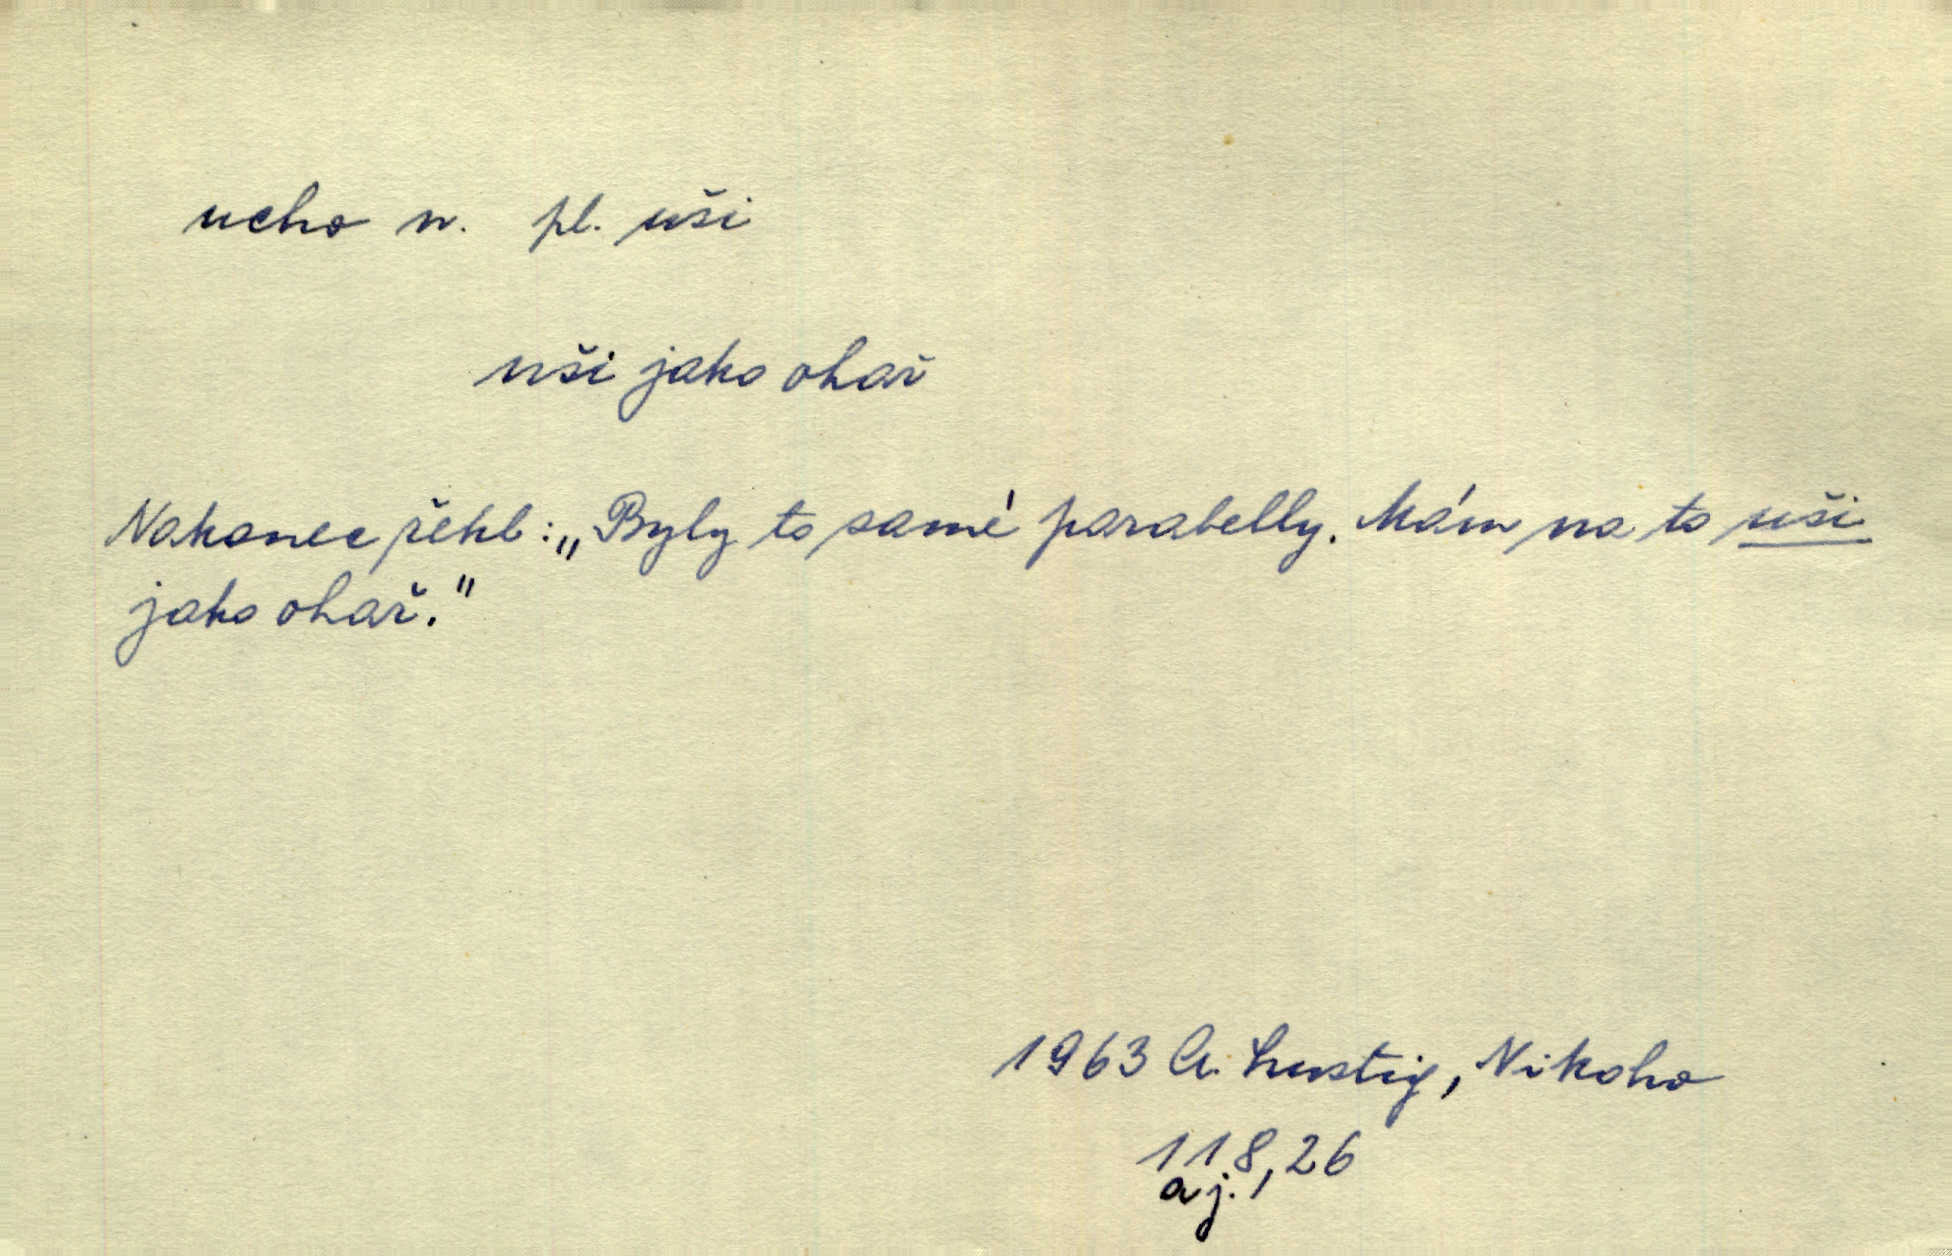 ucho n. pl. uši
uši jako ohař
Nakonec řekl: „Byly to samé parabelly. Mám na to uši
jako ohař."
1963 A. Lustig, Nikoho
118,26
a j.